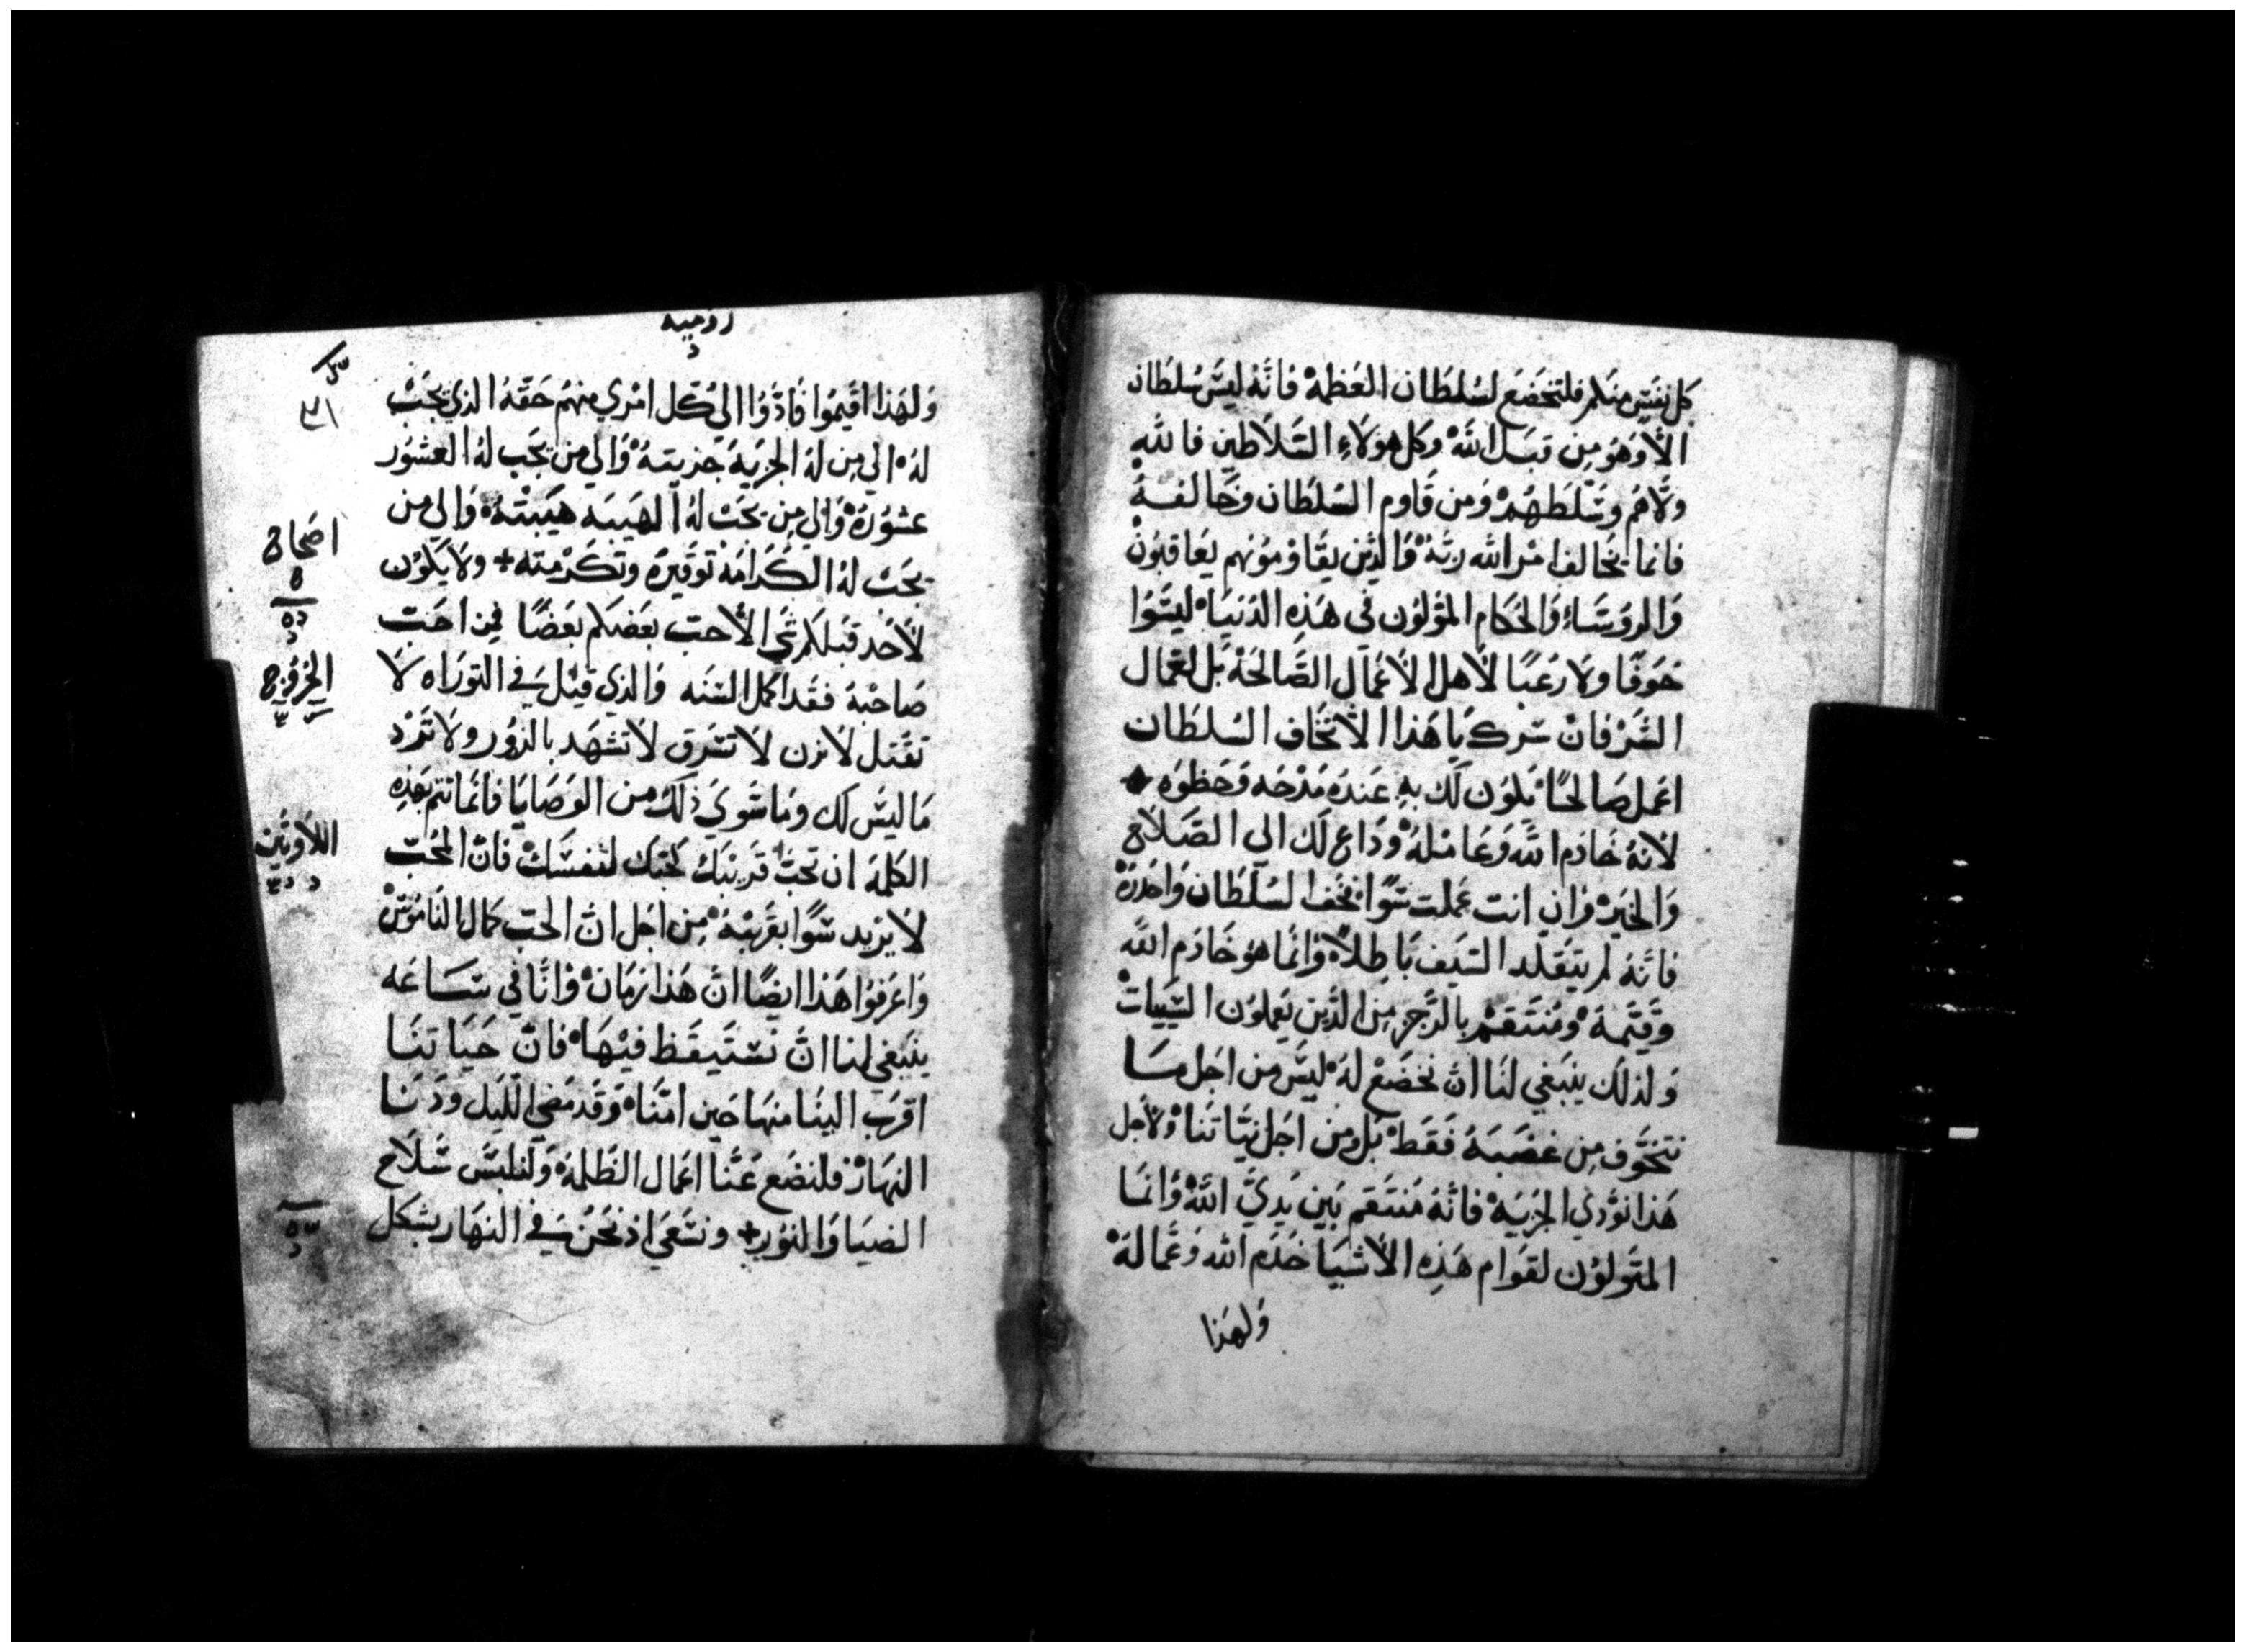 كل نفس منكم فلتخضع لسلطان العظمة فانه ليس سلطان
الا وهو من قبل الله وكل هولاء السلاطين فالله
ولاهم وسلطهم ومن قاوم السلطان وخالفه
فانما يخالف امر الله ربه والذين يقاومونهم يعاقبون
والروساء والحكام المولون في هذه الدنيا ليسوا
خوفا ولا رعبا لاهل الاعمال الصالحة بل لعمال
الشر فان سرك يا هذا الا تخاف السلطان
اعمل صالحا يكون لك به عنده مدحه وحظوه
لانه خادم الله وعامله وداع لك الى الصلاح
والخير وان انت عملت سوا فخف السلطان واحذره
فانه لم يتقلد السيف باطلا وانما هو خادم الله
وقيمه ومنتقم بالرجز من الذين يعملون السييات
ولذلك ينبغي لنا ان نخضع له ليس من اجل ما
نتخوف من غضبه فقط بل ومن اجل نياتنا ولاجل
هذا نودي الجزيه فانه منتقم بين يدي الله وانما
المتولون لقوام هذه الاشيا خدم الله وعماله
ولهذا
روميه
ولهذا اقيموا فادوا الي كل امري منهم حقه الذي يجب
له الي من له الجزيه جزيته والي من يجب له العشور
عشوره والي من يجب له الهيبه هيبته والي من
يجب له الكرامه توقيره وتكرمته + ولا يكون
لاحد قبلكم شي الا حب بعضكم بعضا فمن احب
صاحبه فقد اكمل السنه والذي قيل في التوراه لا
تقتل لا تزن لا تسرق لا تشهد بالزور ولا تمرد
ما ليس لك وما سوي ذلك من الوصايا فانما تتم بهذه
الكلمه ان تحب قريبك كحبك لنفسك فان المحب
لا يريد سوا بقريبه من اجل ان الحب كمال الناموس
واعرفوا هذا ايضا ان هذا زمان وانا في ساعه
ينبغي لنا ان نستيقظ فيها فان حياتنا
اقرب الينا منها حين امنا وقد مضي الليل ودنا
النهار فلنضع عنا اعمال الظلمه ولنلبس سلاح
الضيا والنور + ونسعي اذ نحن في النهار بشكل
اصحاح
الخروج
اللاويين